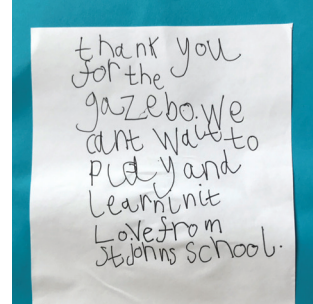 thank you
for the
gazebo. We
cant wait to
play and
learn in it
Love from
St Johns School.